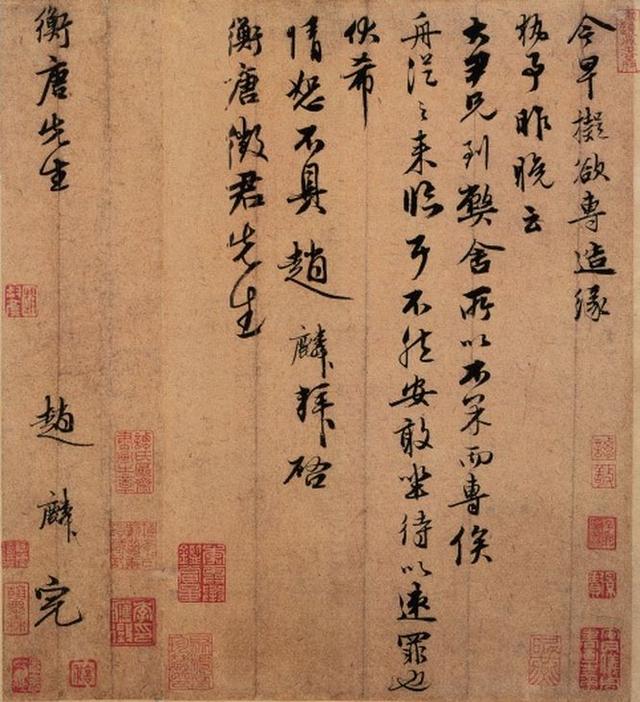 今早擬欲專造緣
執事昨晚云
大尹兄到弊舍所以不果而專俟
舟從之來臨耳不然安敢坐待以速罪也
伏希
情恕不具趙麟拜啓
衡唐徵君先生
衡唐先生 趙麟完